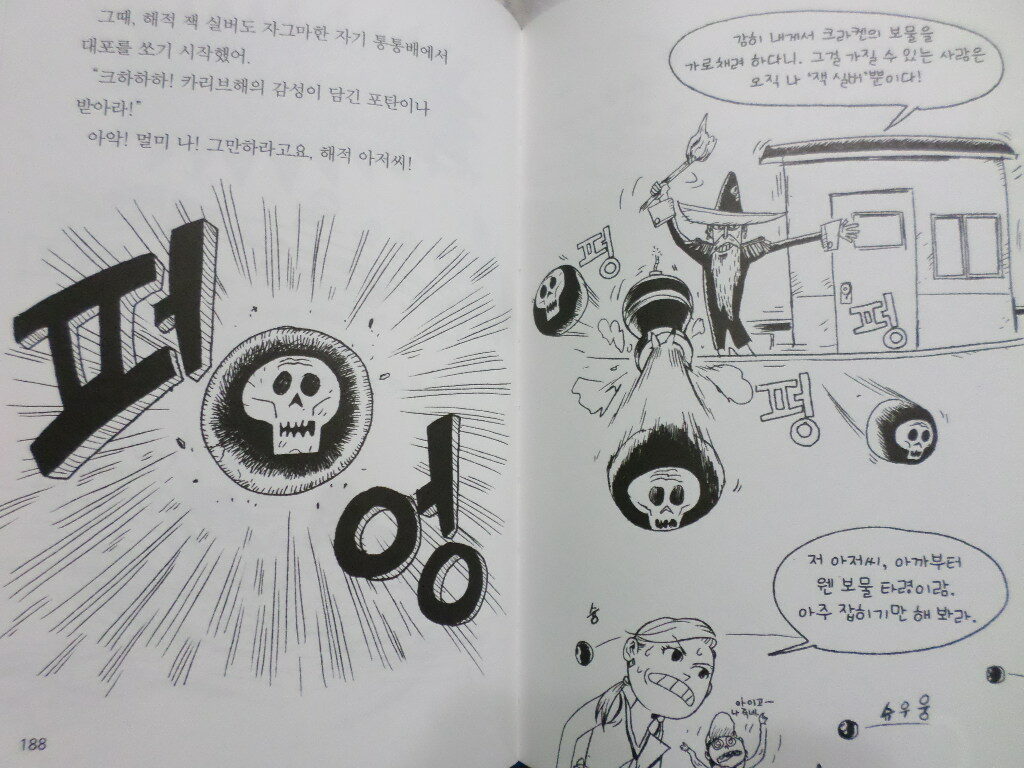 그때, 해적 잭 실버도 자그마한 자기 통통배에서
대포를 쏘기 시작했어.
“크하하하! 카리브해의 감성이 담긴 포탄이나
받아라!”
아악! 멀미 나! 그만하라고요, 해적 아저씨!
퍼
엉
188
감히 내게서 크라켄의 보물을
가로채려 하다니. 그걸 가질 수 있는 사람은
오직 나 ‘잭 실버’뿐이다!
펑
펑
펑
저 아저씨, 아까부터
웬 보물 타령이람.
아주 잡히기만 해 봐라.
슝
아이고~
나 죽네.
슈우웅